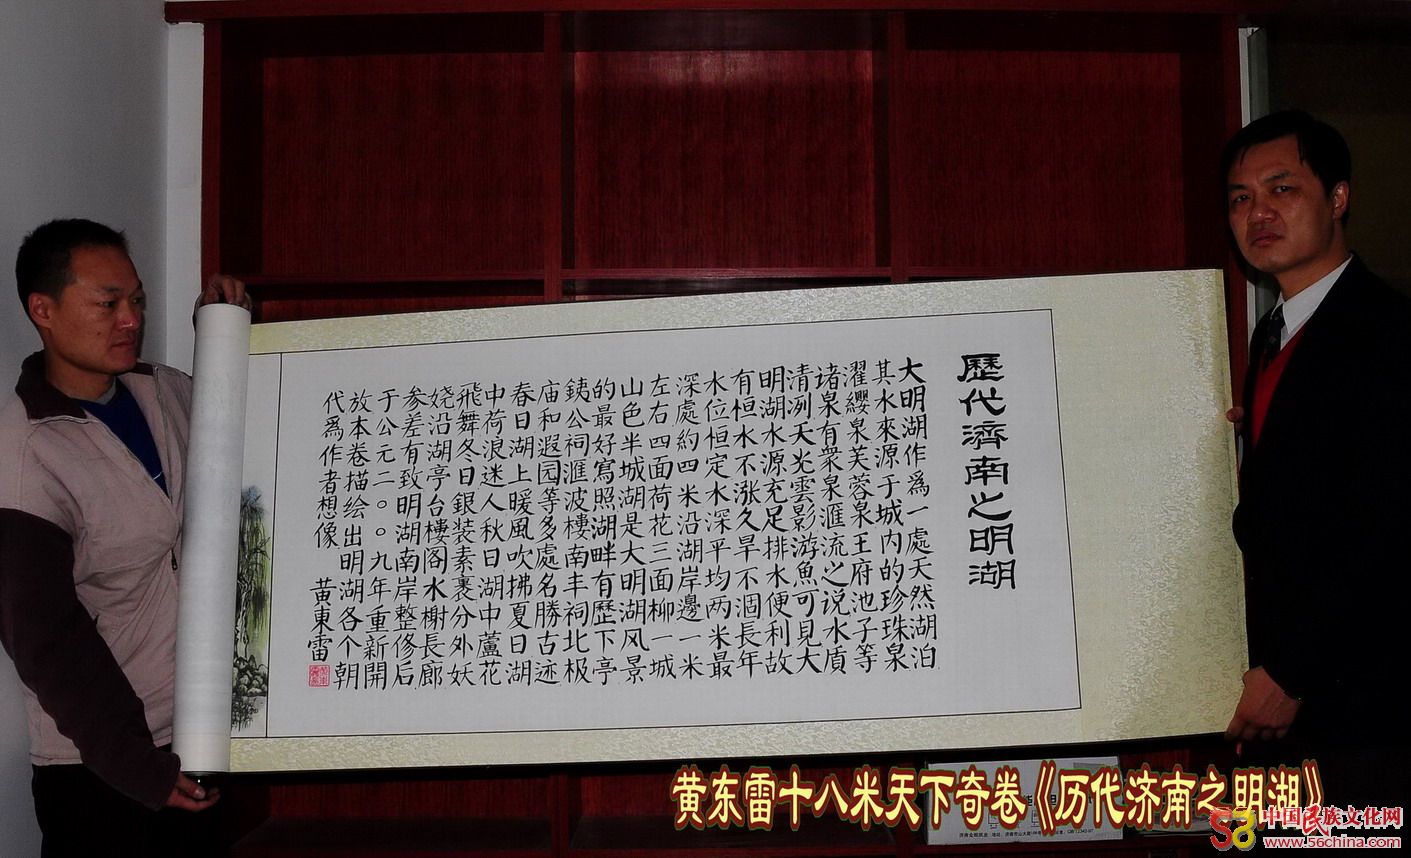 歷代濟南之明湖
大明湖作爲一處天然湖泊
其水來源于城内的珍珠泉
濯纓泉芙蓉泉王府池子等
诸泉有衆泉滙流之说水质
清洌天光雲影游魚可見大
明湖水源充足排水便利故
有恒水不涨久旱不涸長年
水位恒定水深平均两米最
深處約四米沿湖岸邊一米
左右四面荷花三面柳一城
山色半城湖是大明湖风景
的最好寫照湖畔有歷下亭
銕公祠滙波樓南丰祠北极
庙和遐园等多處名勝古迹
春日湖上暖風吹拂夏日湖
中荷浪迷人秋日湖中蘆花
飛舞冬日銀装素裹分外妖
娆沿湖亭台樓阁水榭長廊
参差有致明湖南岸整修后
于公元二〇〇九年重新開
放本卷描绘出明湖各个朝
代爲作者想像 黄東雷
黄东雷十八米天下奇卷《历代济南之明湖》
56 中国民族文化网
www.56china.com